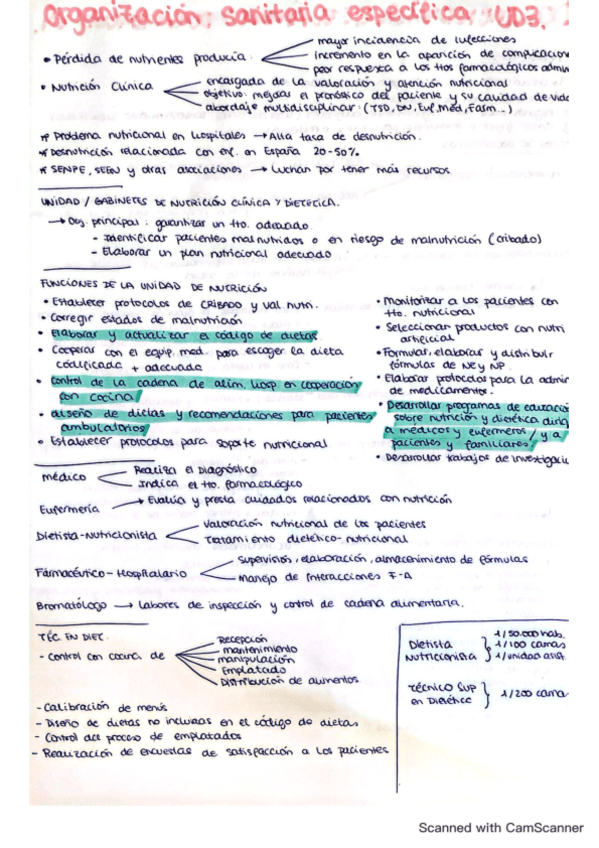 Organización sanitaria específica UD3.
mayor incidencia de infecciones
• Pérdida de nutrientes producía
incremento en la aparición de complicacion
peor respuesta a los ttos farmacológicos admin
• Nutrición Clínica
encargada de la valoración y atención nutricional
objetivo: mejorar el pronóstico del paciente y su calidad de vida
abordaje multidisciplinar: (TSD, DN, Enf, Med, Farm...)
* Problema nutricional en hospitales → Alta tasa de desnutrición.
* Desnutrición relacionada con enf. en España 20-50%
* SENPE, SEEN y otras asociaciones → Luchan por tener más recursos.
UNIDAD / GABINETES DE NUTRICIÓN CLÍNICA Y DIETÉTICA.
→ Obj. principal: garantizar un tto. adecuado.
- Identificar pacientes malnutridos o en riesgo de malnutrición (cribado)
- Elaborar un plan nutricional adecuado
FUNCIONES DE LA UNIDAD DE NUTRICIÓN
• Establecer protocolos de CRIBADO y val. nutri.
• Corregir estados de malnutrición
• Elaborar y actualizar el código de dietas
• Cooperar con el equip. med. para escoger la dieta
codificada + adecuada
• Control de la cadena de alim. hosp en cooperación
con cocina
• diseño de dietas y recomendaciones para pacientes
ambulatorios
• Establecer protocolos para soporte nutricional
• Monitorizar a los pacientes con
tto. nutricional
• Seleccionar productos con nutri
artificial
• Formular, elaborar y distribuir
fórmulas de NE y NP.
• Elaborar protocolos para la admin
de medicamentos.
• Desarrollar programas de educación
sobre nutrición y dietética dirig
a médicos y enfermeros / y a
pacientes y familiares
• Desarrollar trabajos de investigació
médico
Realiza el Diagnóstico
Indica el tto. farmacológico
Enfermería → Evalúa y presta cuidados relacionados con nutrición
Dietista-Nutricionista
valoración nutricional de los pacientes
Tratamiento dietético-nutricional
Farmacéutico-Hospitalario
Supervisión, elaboración, almacenimiento de fórmulas
Manejo de Interacciones F-A
Bromatólogo → Labores de inspección y control de cadena alimentaria.
TÉC. EN DIET.
- Control con cocina de
Recepción
mantenimiento
manipulación
Emplatado
Distribución de alimentos
- Calibración de menús
- Diseño de dietas no incluidas en el código de dietas
- Control del proceso de emplatados
- Realización de encuestas de satisfacción a los pacientes
Dietista
Nutricionista
1/50.000 hab.
1/100 camas
1/unidad asist.
Técnico Sup
en Dietétic
1/200 cama
Scanned with CamScanner